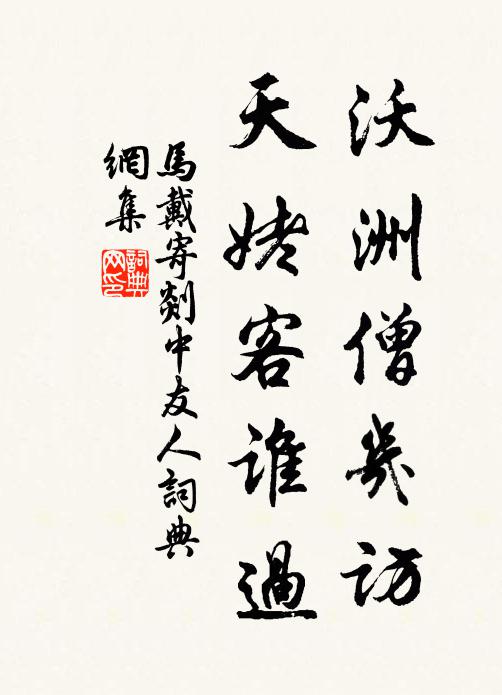 沃洲僧幾訪
天姥客誰過
馬戴寄剡中友人詞典
網集
詞典
网印